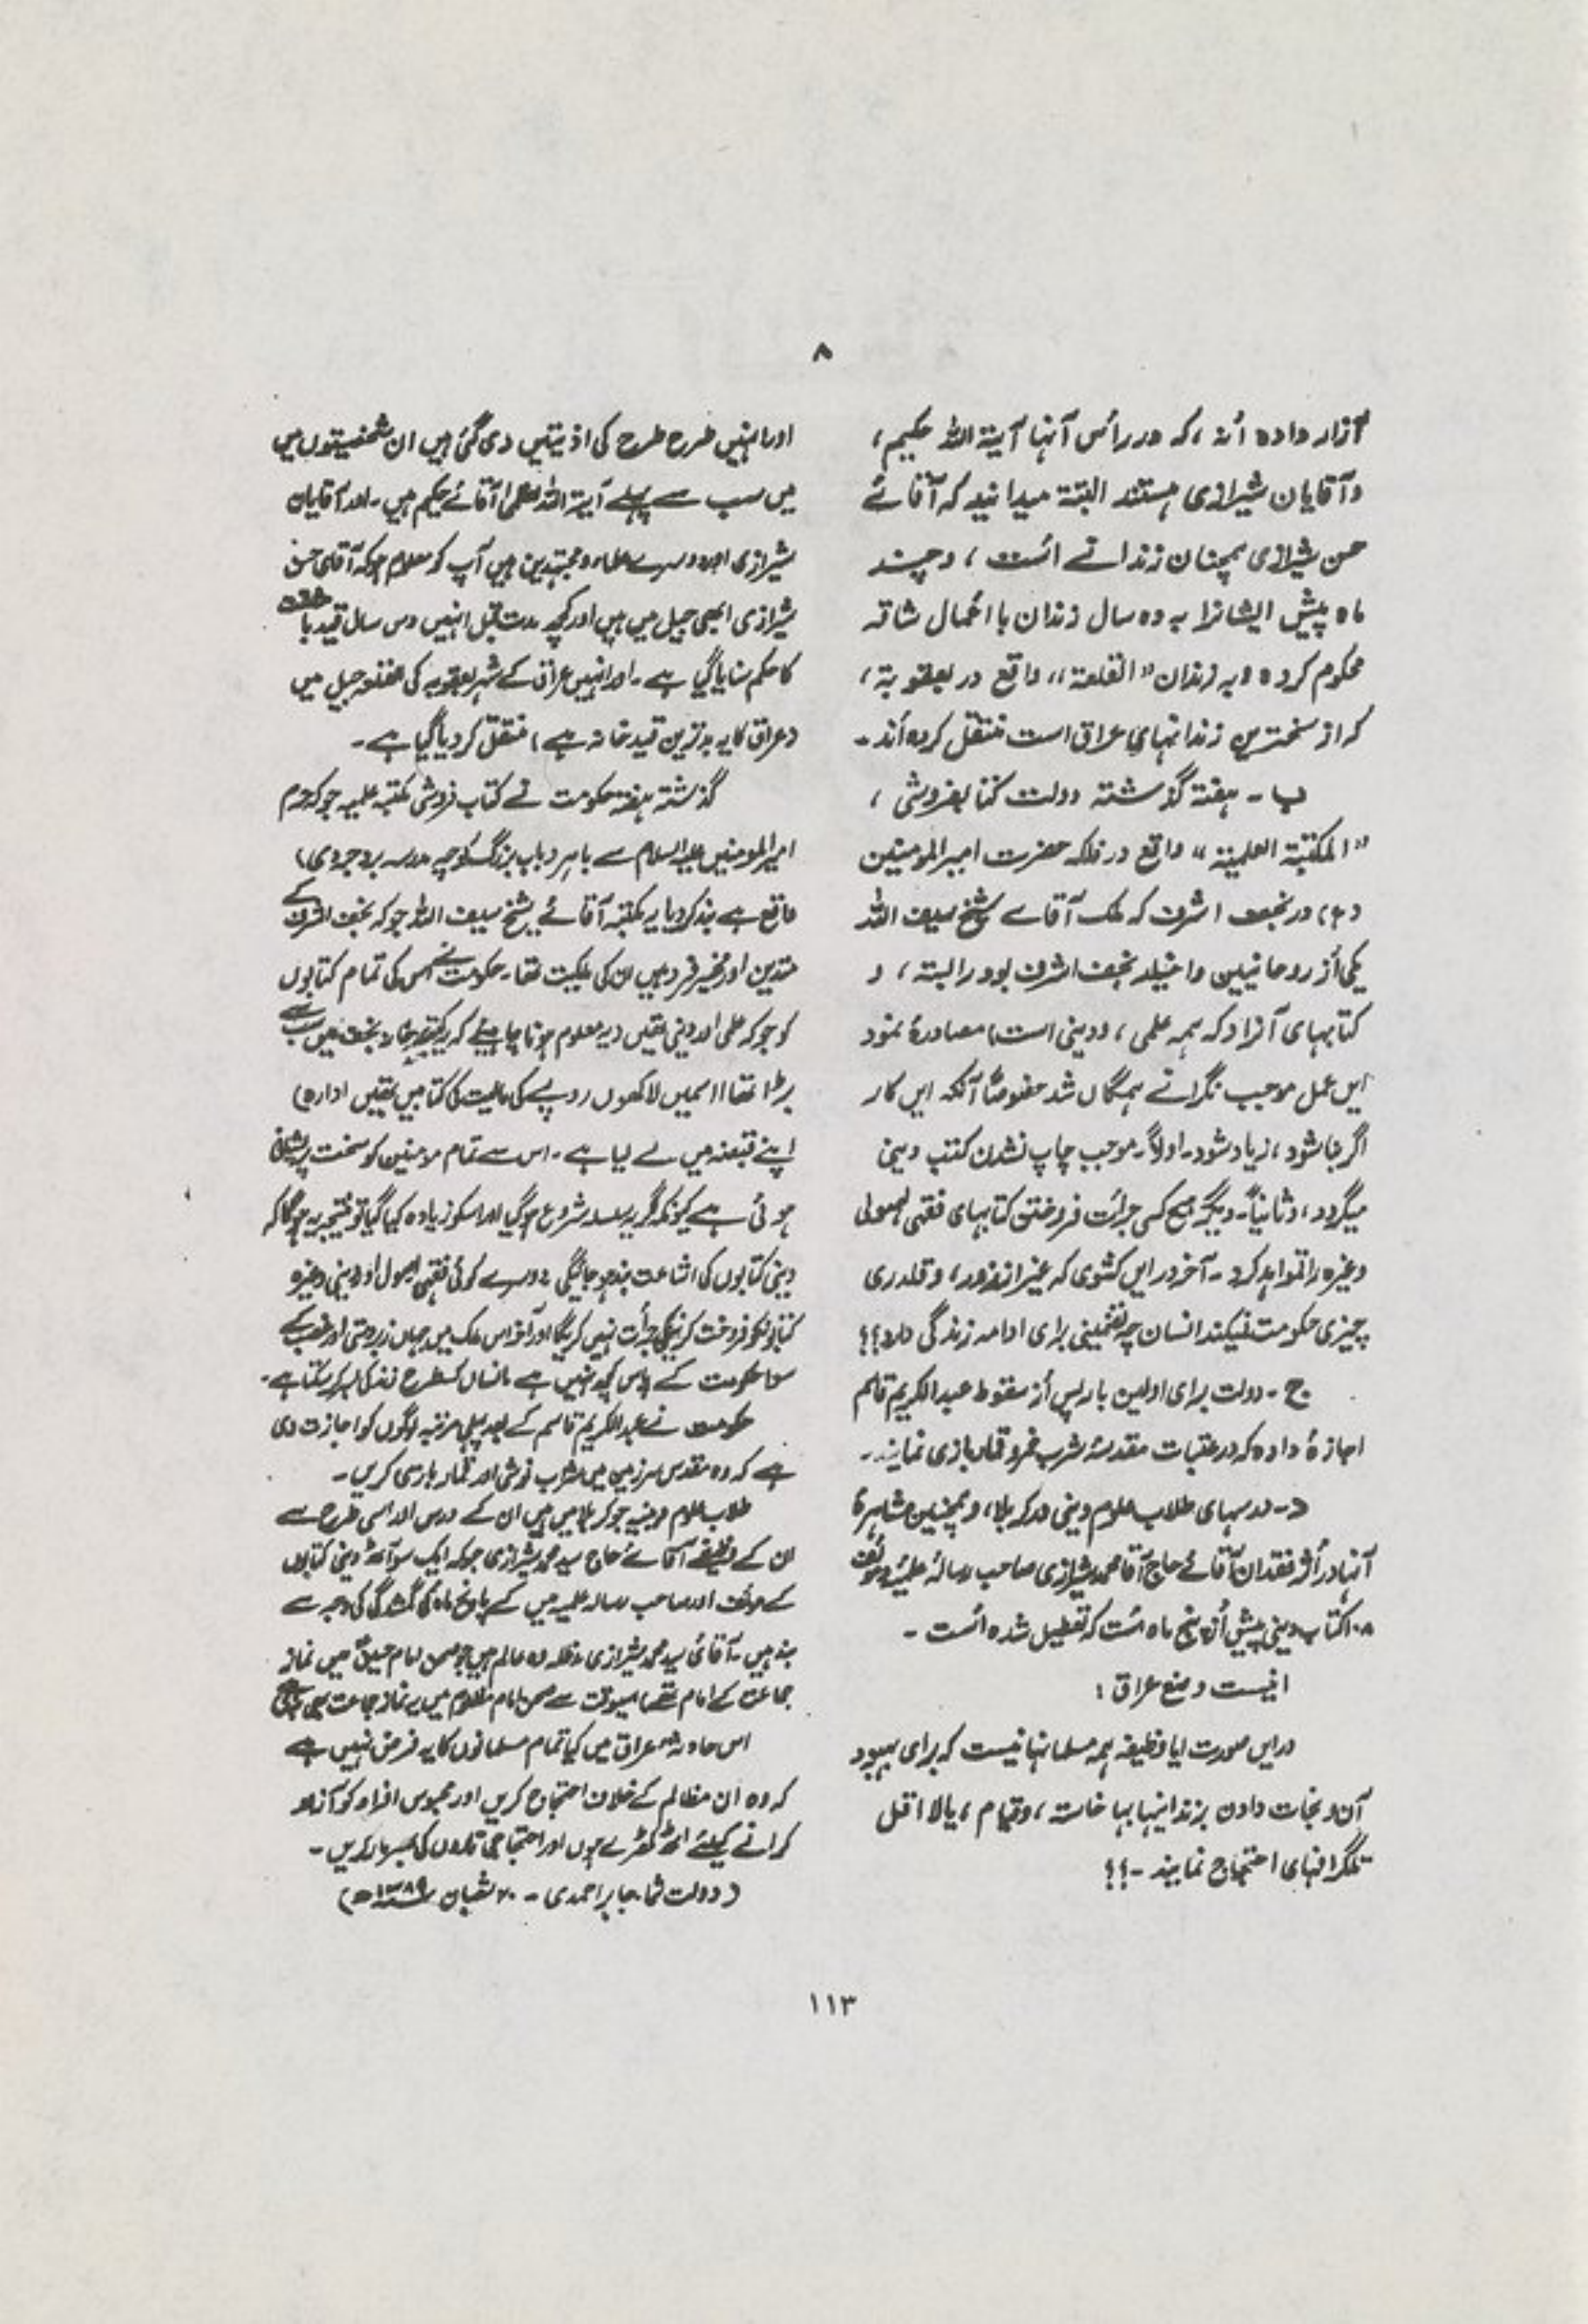 ۸
آزار داده أند ، که در رأس آنها آیة الله حکیم ،
وآقایان شیرازی هستند البته میدانید که آقائے
حسن شیرازی همچنان زندانے است ، وچند
ماه پیش ایشانرا به ده سال زندان با اعمال شاقه
محکوم کرده وبه زندان "القلعة" واقع در بعقوبة ،
که از سختترین زندانهای عراق است منتقل کرده أند ۔
ب ۔ هفته گذشته دولت کتابفروشی ،
"المکتبة العلمیة" واقع در فلکه حضرت امیرالمومنین
(ع) در نجف اشرف که ملک آقاے شیخ سیف الله
یکی أز روحانیین واخیار نجف اشرف بود را بسته ، و
کتابهای آنرا که همه علمی ، ودینی است ، مصادرهٔ نمود
این عمل موجب نگرانے همگان شد خصوصًا آنکه این کار
اگر بنا شود ، زیاد شود ۔ اولاً ۔ موجب چاپ نشدن کتب دینی
میگردد ، وثانیاً ۔ دیگر هیچ کسی جرأت فروختن کتابهای فقهی اصولی
وغیره را نخواهد کرد ۔ آخر در این کشوری که غیر از زور ، وقلدری
چیزی حکومت نمیکند انسان چه تضمینی برای ادامه زندگی دارد؟؟
ج ۔ دولت برای اولین بار پس أز سقوط عبد الکریم قاسم
اجازهٔ داده که در عتبات مقدسهٔ شرب خمر وقمار بازی نمایند ۔
د ۔ مدرسهای طلاب علوم دینی در کربلا ، وهمچنین مشاهرهٔ
آنها در أثر فقدان آقائے حاج آقا محمد شیرازی صاحب رسالهٔ علمیهٔ ومؤلف
۱۰۸ کتاب دینی پیش أز پنج ماه است که تعطیل شده است ۔
اینست وضع عراق :
در این صورت ایا وظیفه همه مسلمانها نیست که برای بهبود
آن ونجات دادن بزندانیها بپا خاسته ، وقیام ، یا لا اقل
تلگرافهای احتجاج نمایند ۔ ؟؟
اور انہیں طرح طرح کی اذیتیں دی گئی ہیں ان شخصیتوں میں
میں سب سے پہلے آیة الله العظمی آقائے حکیم ہیں ۔ اور آقایان
شیرازی اور دوسرے علماء ومجتہدین ہیں آپ کو معلوم ہو کہ آقای حسن
شیرازی ابھی جیل میں ہیں اور کچھ مدت قبل انہیں دس سال قید با مشقت
کا حکم سنایا گیا ہے ۔ اور انہیں عراق کے شہر بعقوبہ کی جیل میں
(عراق کا یہ بدترین قید خانہ ہے) منتقل کر دیا گیا ہے ۔
گذشتہ ہفتہ حکومت نے کتاب فروشی مکتبہ علمیہ جو کہ حرم
امیرالمومنین علیہ السلام سے باہر (باب بزرگ کوچہ مدرسہ بروجردی)
واقع ہے بند کر دیا یہ مکتبہ آقائے شیخ سیف الله جو کہ نجف اشرف کے
متدین اور مخیر فرد ہیں ان کی ملکیت تھا ۔ حکومت نے اس کی تمام کتابوں
کو جو کہ علمی اور دینی تھیں (یہ معلوم ہونا چاہیئے کہ یہ مکتبہ نجف میں سب سے
بڑا تھا اسمیں لاکھوں روپے کی مالیت کی کتابیں تھیں ادارہ)
اپنے قبضہ میں لے لیا ہے ۔ اس سے تمام مومنین کو سخت پریشانی
ہوئی ہے کیونکہ اگر یہ سلسلہ شروع ہو گیا اور اسکو زیادہ کیا گیا تو نتیجہ یہ ہو گا کہ
دینی کتابوں کی اشاعت بند ہو جائیگی دوسرے کوئی فقہی اصول اور دینی وغیرہ
کتابونکو فروخت کرنیکی جرأت نہیں کریگا اور آخر اس ملک میں جہاں زبردستی اور غصب کے
سوا حکومت کے پاس کچھ نہیں ہے انسان کسطرح زندگی بسر کر سکتا ہے ۔
حکومت نے عبد الکریم قاسم کے بعد پہلی مرتبہ لوگوں کو اجازت دی
ہے کہ وہ مقدس سرزمین میں شراب نوشی اور قمار بازی کریں ۔
طلاب علوم دینیہ جو کربلا میں ہیں ان کے درس اور اسی طرح سے
ان کے وظیفے آقائے حاج سید محمد شیرازی جو کہ ایک سو آٹھ دینی کتابوں
کے مؤلف اور صاحب رسالہ علمیہ ہیں کے پانچ ماہ کی گمشدگی کی وجہ سے
بند ہیں ۔ آقائی سید محمد شیرازی مدظلہ وہ عالم ہیں جو صحن امام حسین میں نماز
جماعت کے امام تھے اسیوقت سے صحن امام مظلوم میں یہ نماز جماعت بھی
اس حادثہ عراق میں کیا تمام مسلمانوں کا یہ فرض نہیں ہے
کہ وہ ان مظالم کے خلاف احتجاج کریں اور محبوس افراد کو آزاد
کرانے کیلئے اٹھ کھڑے ہوں اور احتجاجی تاروں کی بھرمار کریں ۔
(دولت شما ۔ جابر احمدی ۔ ۲۰ شعبان ۱۳۸۹ھ)
۱۱۳